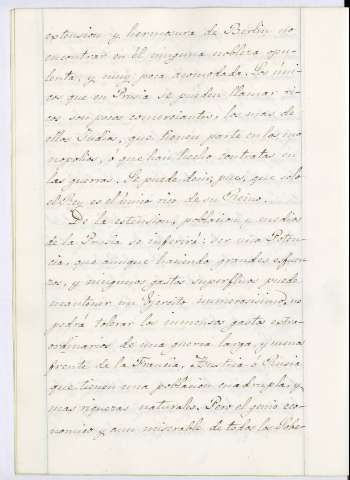 extension y hermosura de Berlin no
encontrar en el ninguna nobleza opu-
lenta, y muy poca acomodada. Los úni-
cos que en Prusia se pueden llamar ri-
cos son pocos comerciantes, los mas de
ellos Judios, que tienen parte en los mo
nopolios, ó que han hecho contratas en
las guerras. Se puede decir, pues, que solo
el Rey es el único rico de su Reino.
De la estension, poblacion y medios
de la Prusia se inferirá; ser una Poten-
cia, que aunque haciendo grandes esfuer-
zos, y ningunos gastos superfluos puede
mantener un Egercito numerosisimo, no
podrá tolerar los inmensos gastos extra-
ordinarios de una guerra larga, y menos
frente de la Francia, Austria ó Rusia
que tienen una poblacion cuadrupla, y
mas riquezas naturales. Pero el genio eco-
nomico y aun miserable de todos los Gober-